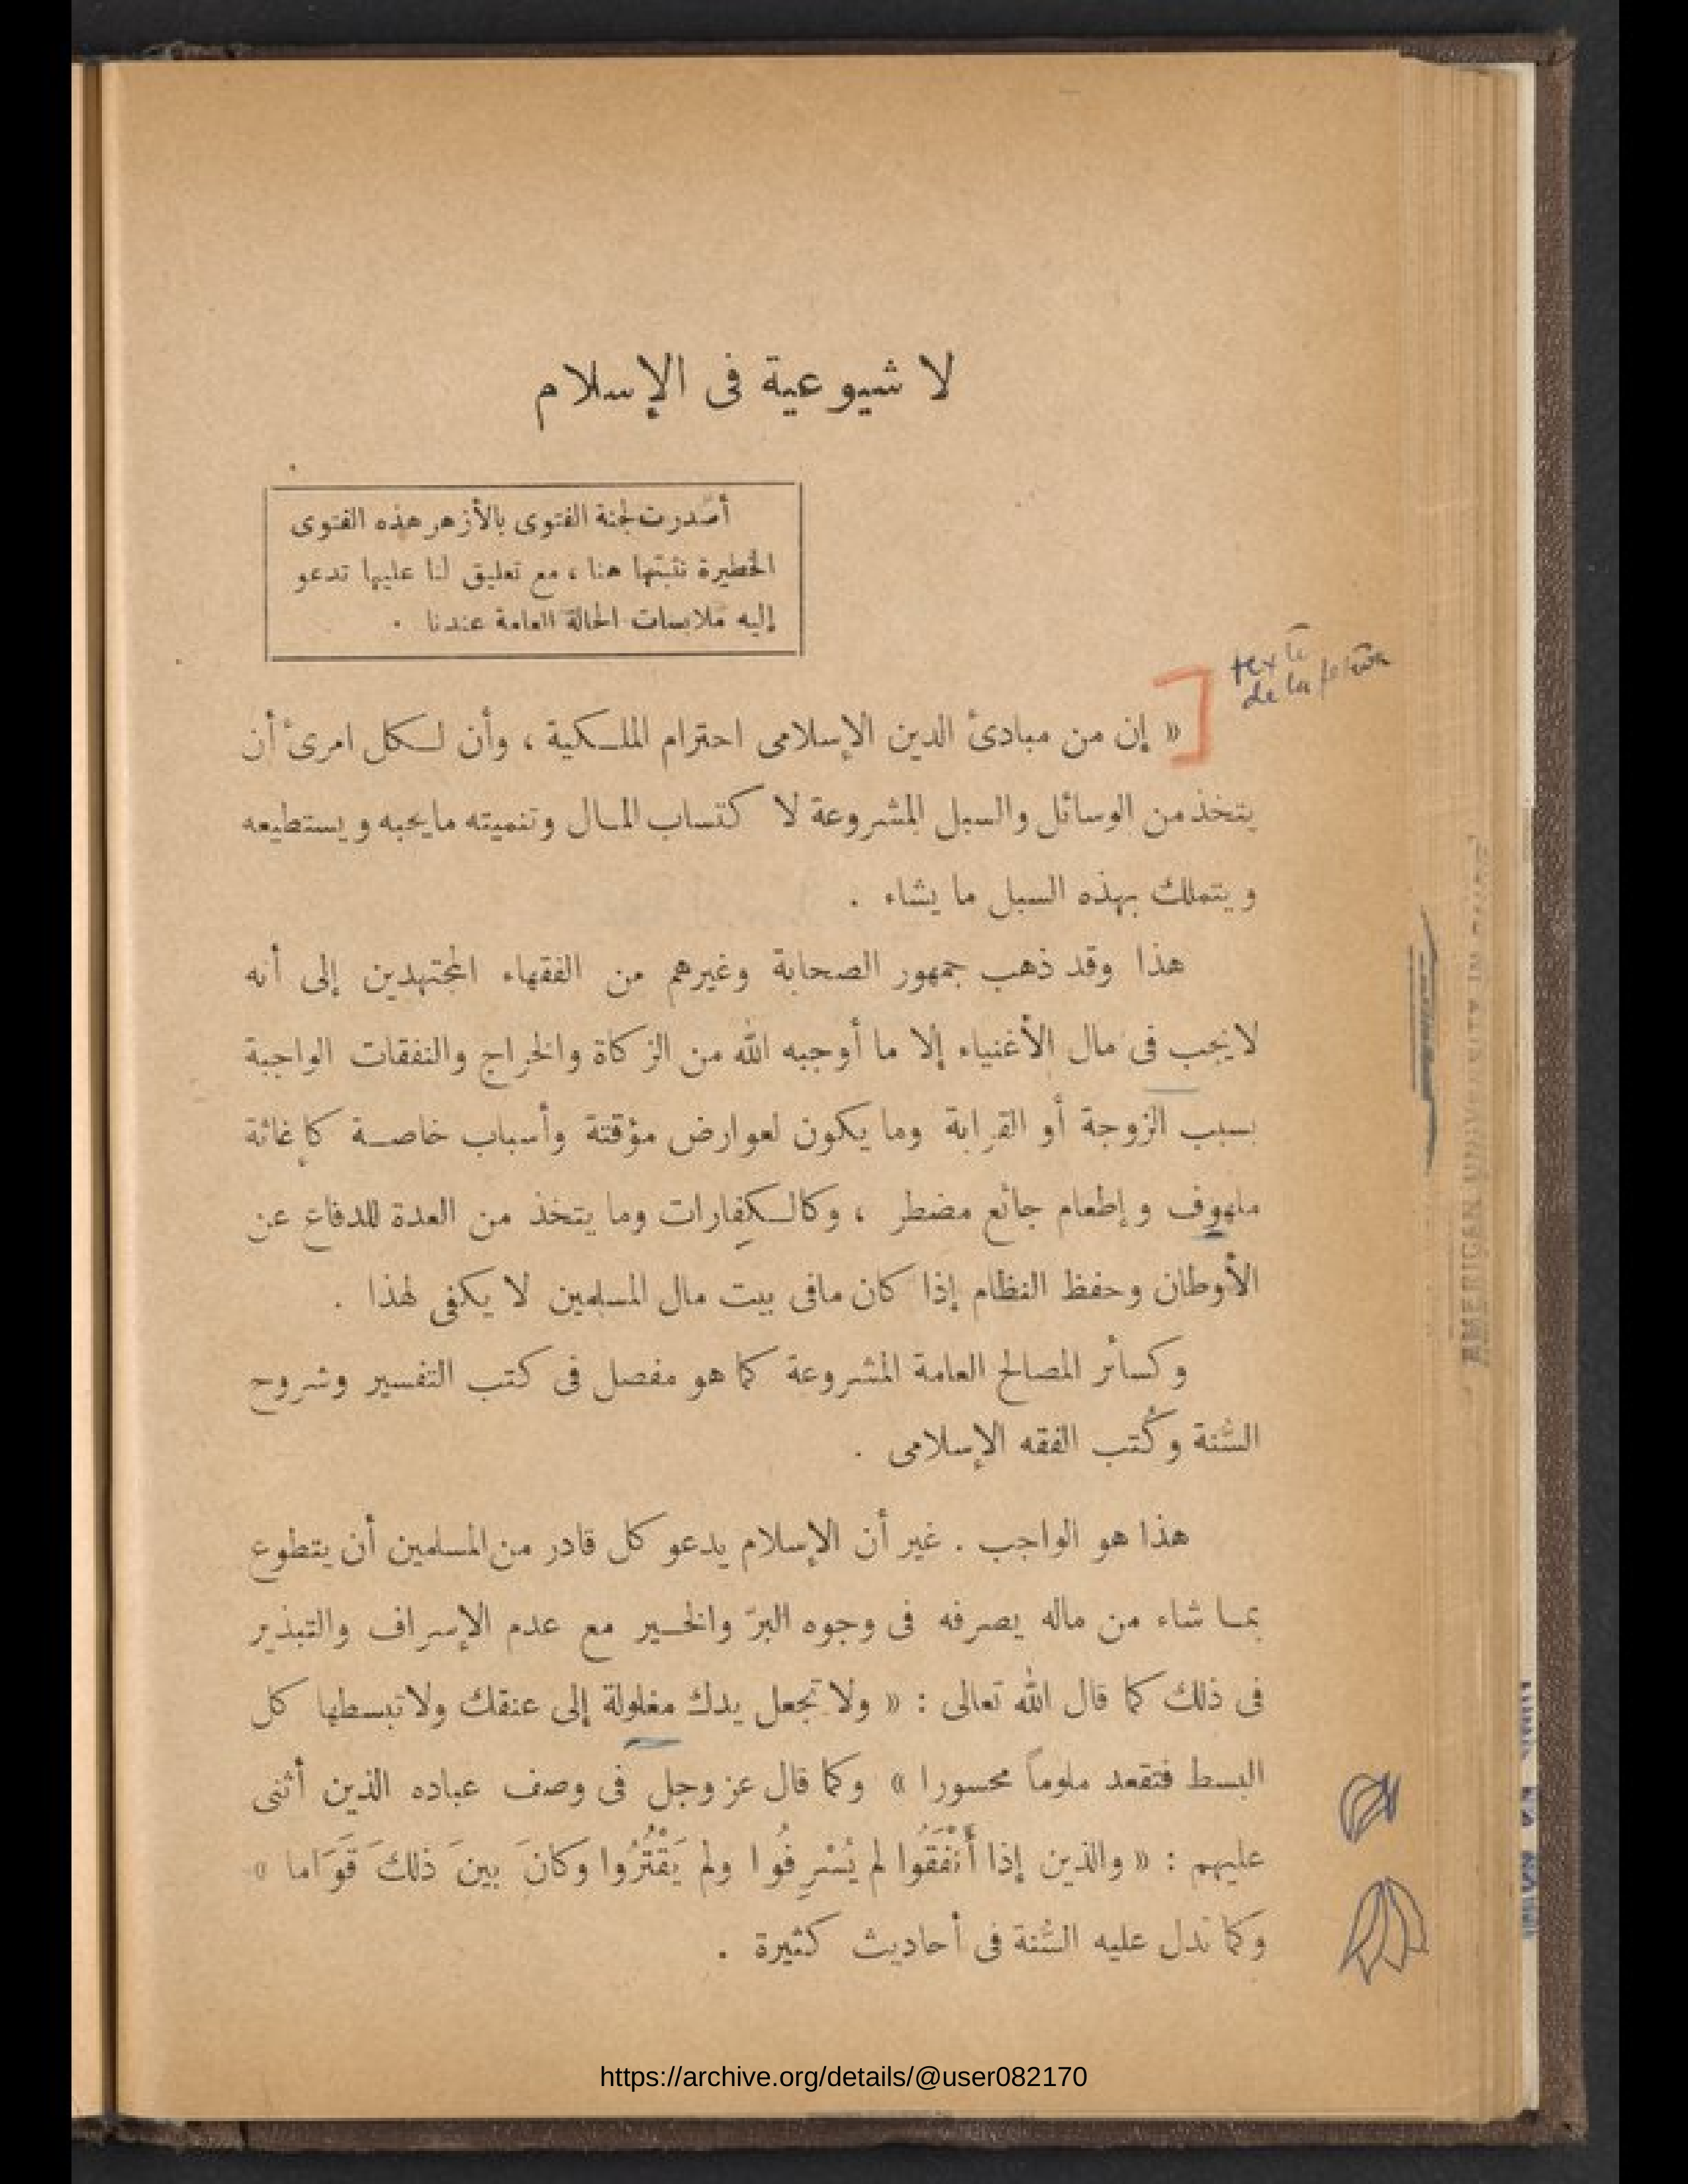 لا شيوعية فى الإسلام
أصدرت لجنة الفتوى بالأزهر هذه الفتوى
الخطيرة نثبتها هنا ، مع تعليق لنا عليها تدعو
إليه ملابسات الحالة العامة عندنا .
texte
de la fetwa
« إن من مبادئ الدين الإسلامى احترام الملكية ، وأن لكل امرئ أن
يتخذ من الوسائل والسبل المشروعة لا كتساب المال وتنميته مايحبه ويستطيعه
ويتملك بهذه السبل ما يشاء .
هذا وقد ذهب جمهور الصحابة وغيرهم من الفقهاء المجتهدين إلى أنه
لايجب فى مال الأغنياء إلا ما أوجبه الله من الزكاة والخراج والنفقات الواجبة
بسبب الزوجة أو القرابة وما يكون لعوارض مؤقتة وأسباب خاصة كإغاثة
ملهوف وإطعام جائع مضطر ، وكالكفارات وما يتخذ من العدة للدفاع عن
الأوطان وحفظ النظام إذا كان مافى بيت مال المسلمين لا يكفى لهذا .
وكسائر المصالح العامة المشروعة كما هو مفصل فى كتب التفسير وشروح
السُّنة وكُتب الفقه الإسلامى .
هذا هو الواجب . غير أن الإسلام يدعو كل قادر من المسلمين أن يتطوع
بما شاء من ماله يصرفه فى وجوه البرّ والخير مع عدم الإسراف والتبذير
فى ذلك كما قال الله تعالى : « ولا تجعل يدك مغلولة إلى عنقك ولا تبسطها كل
البسط فتقعد ملوماً محسورا » وكما قال عز وجل فى وصف عباده الذين أثنى
عليهم : « والذين إذا أَنْفَقُوا لم يُسْرِفُوا ولم يَقْتُرُوا وكانَ بينَ ذلكَ قَوَاما »
وكما تدل عليه السُّنة فى أحاديث كثيرة .
AMERICAN UNIVERSITY IN
https://archive.org/details/@user082170